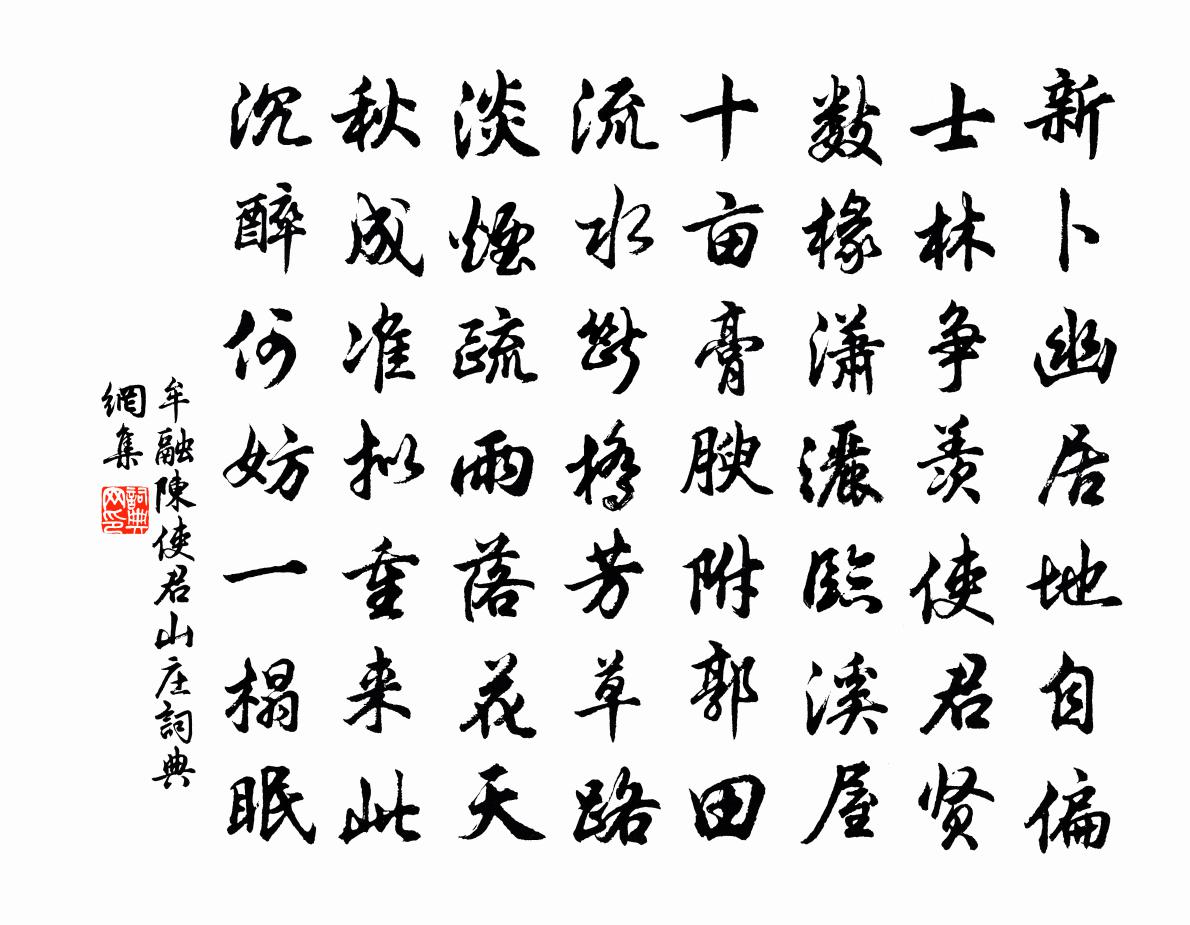 新卜幽居地自偏
士林争羡使君贤
数椽潇灑臨溪屋
十亩膏腴附郭田
流水斷橋芳草路
淡煙疏雨落花天
秋成准拟重来此
沉醉何妨一榻眠
牟融陳使君山庄詞典
網集
詞典
网印